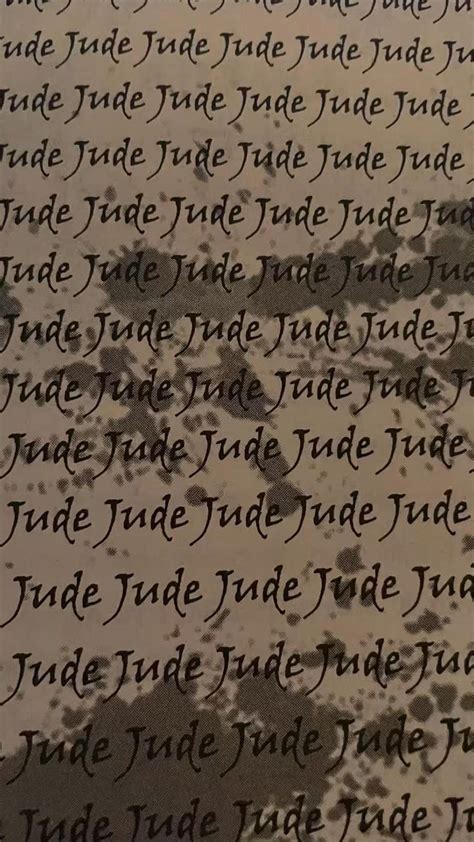 Jude Jude Jude Jude Jude
Jude Jude Jude Jude Jude
Jude Jude Jude Jude Jude
Jude Jude Jude Jude Jude
Jude Jude Jude Jude Jud
Jude Jude Jude Jude Jude
Jude Jude Jude Jude Jude
Jude Jude Jude Jude Jude
Jude Jude Jude Jude Jude
Jude Jude Jude Jude Jude
Jude Jude Jude Jude Jud
Jude Jude Jude Jude Jud
Jude Jude Jude Jude Ju
Jude Jude Jude Jude Ju